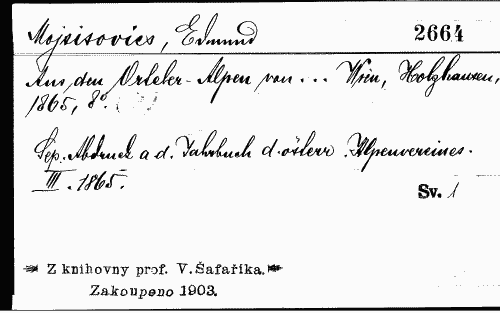 Mojsisovics, Edmund 2664
Aus den Orteler-Alpen von... Wien, Holzhausen,
1865, 8°.
Sep. Abdruck a d. Jahrbuch d. österr. Alpenvereines.
III. 1865.
Sv. 1
Z knihovny prof. V. Šafaříka.
Zakoupeno 1903.